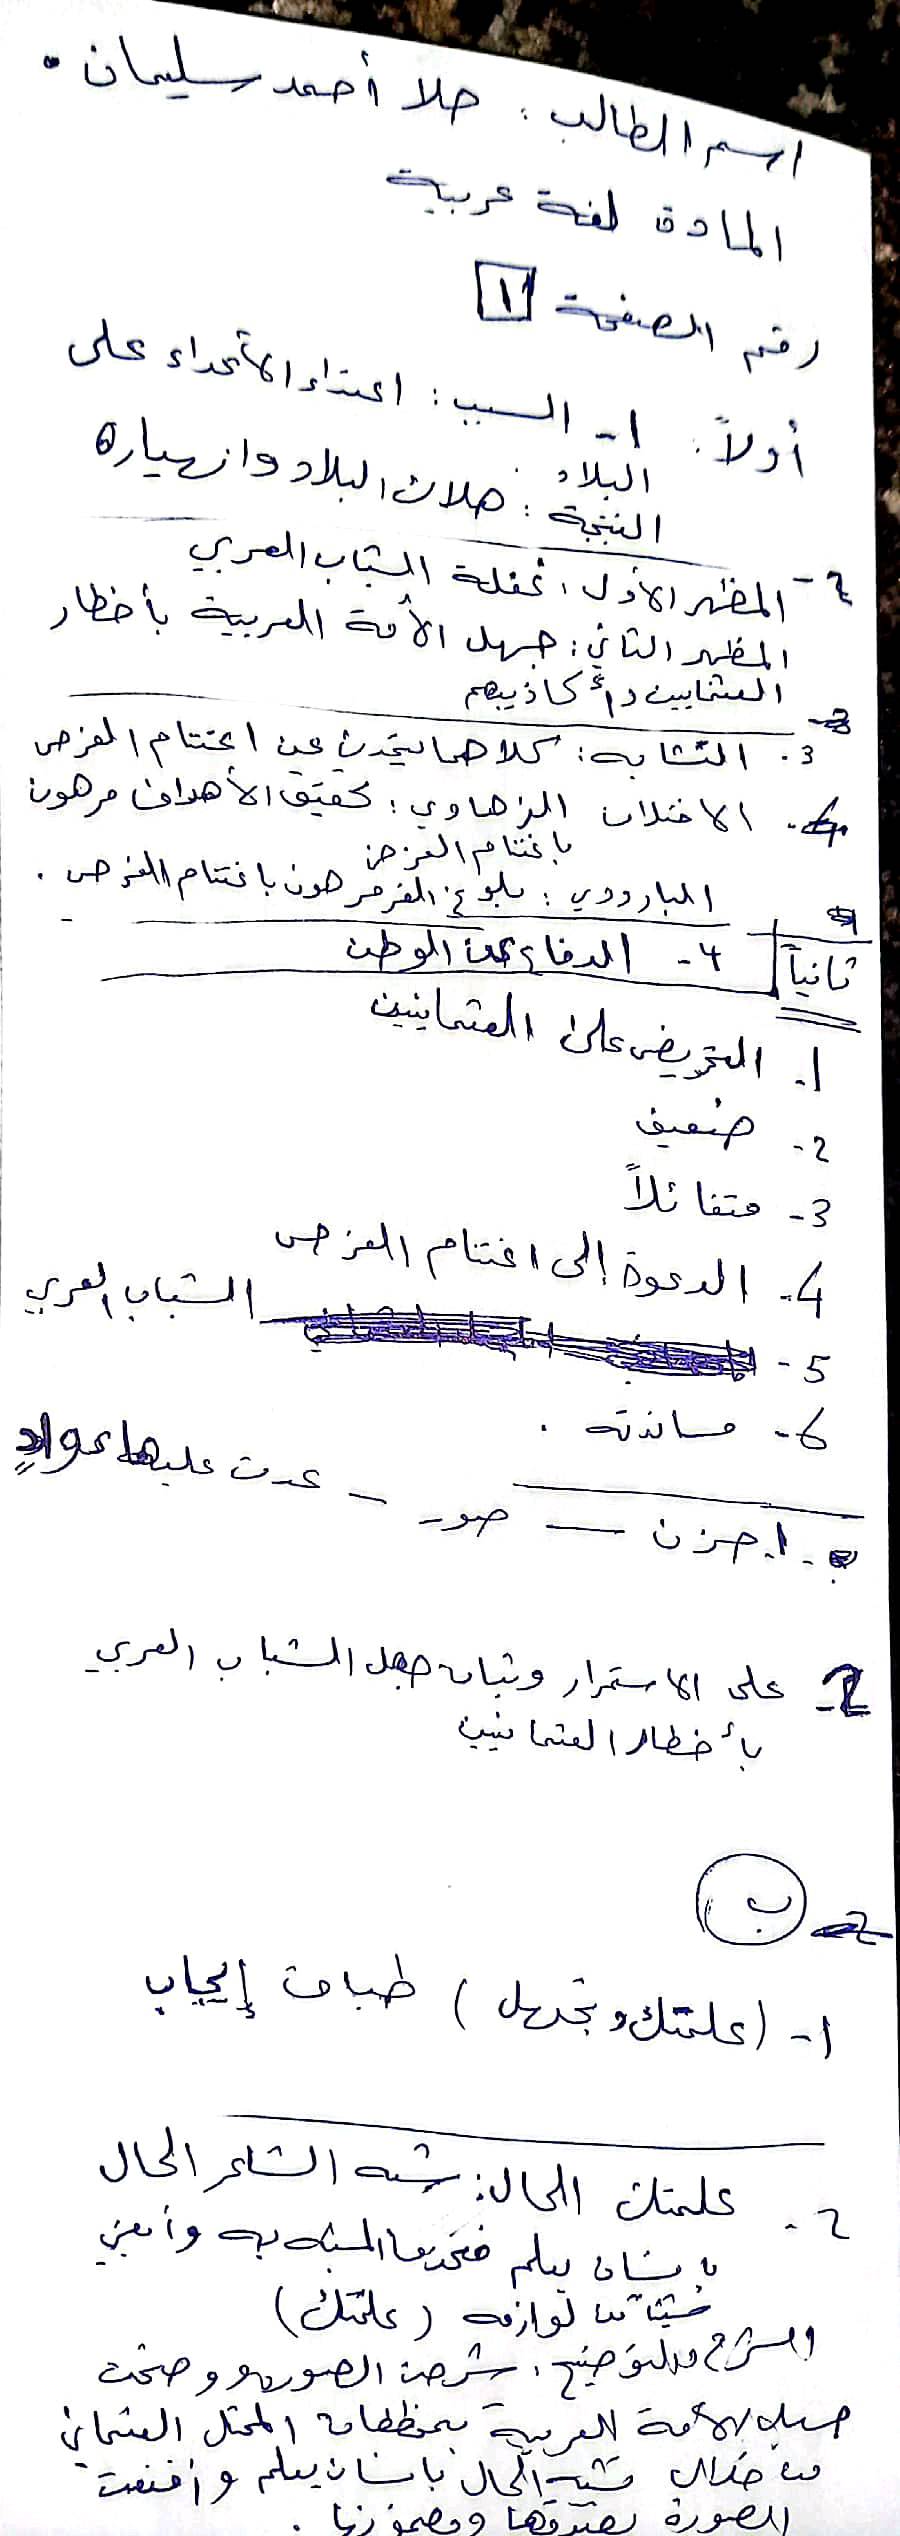 اسم الطالب : حلا أحمد سليمان .
المادة لغة عربية
رقم الصفحة 1
أولاً : 1- السبب : اعتداء الأعداء على
البلاد
النتيجة : هلاك البلاد وانهياره
2- المظهر الأول : غفلة الشباب العربي
المظهر الثاني : جهل الأمة العربية بأخطار
العثمانيين وأكاذيبهم
3. التشابه : كلاهما يتحدث عن اغتنام الفرص
الاختلاف الزهاوي : تحقيق الأهداف مرهون
باغتنام الفرص
البارودي : بلوغ الفرص مرهون باغتنام الفرص .
ثانياً 4- الدفاع عن الوطن
1. التحريض على العثمانيين
2- ضعيف
3- متفائلاً
4- الدعوة إلى اغتنام الفرص
5- الشباب العربي
6- مساندته .
1. حزن — صور - عدت عليها عوادٍ
2- على الاستمرار وثبات جهل الشباب العربي
بأخطار العثمانيين
ب
1- (علمتك وتجهل) طباق إيجاب
2. علمتك الحال : شبه الشاعر الحال
بإنسان يعلم فحذف المشبه به وأبقى
شيئاً من لوازمه (علمتك)
الشرح والتوضيح : شرحت الصورة ووضحت
جهل الأمة العربية بمخططات المحتل العثماني
من خلال تشبيه الحال بإنسان يعلم وأقنعت
الصورة بصدقها ومضمونها .